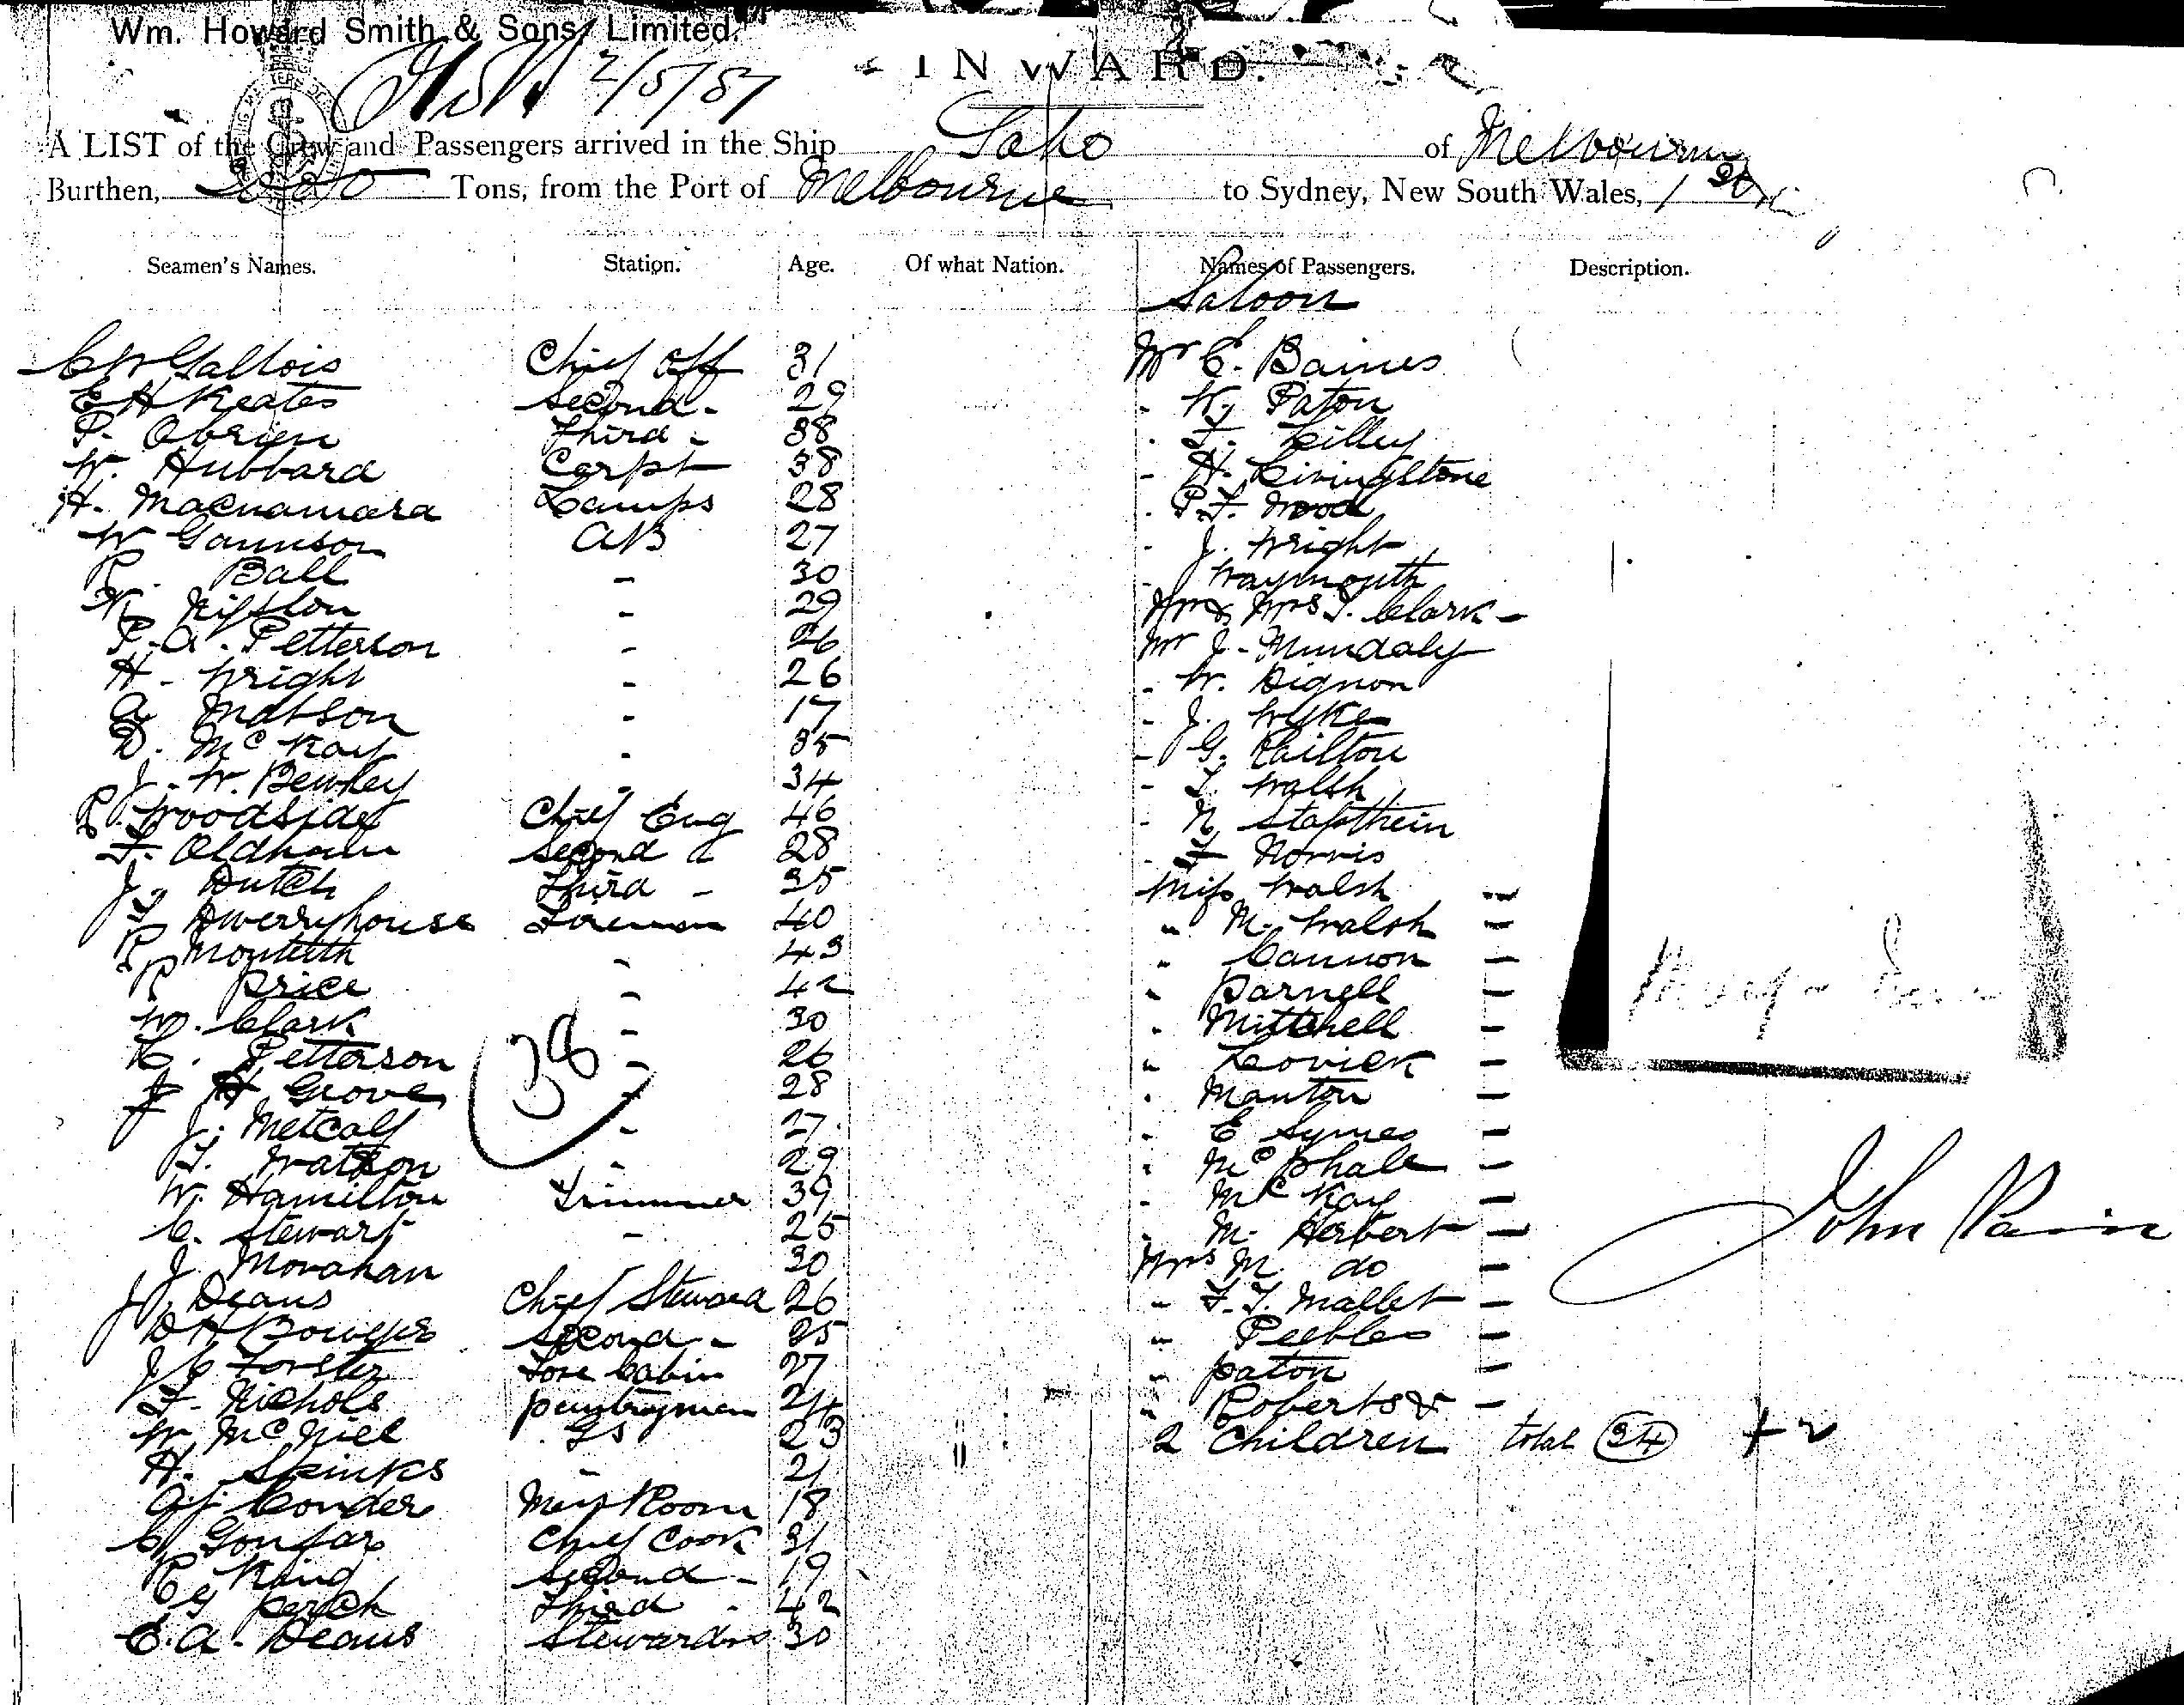 Wm. Howard Smith & Sons, Limited.
2/5/87
INWARD.
A LIST of the Crew and Passengers arrived in the Ship of Melbourne
Burthen, Tons, from the Port of Melbourne to Sydney, New South Wales, 1
Seamen's Names. Station. Age. Of what Nation. Names of Passengers. Description.
Saloon
C W Gallois Chief Off 31 Mr C. Baines
E H Keates Second - 29 - K. Paton
P. Obrien Third - 38 - F. Lilley
W. Hubbard Carpt 38 - H. Livingstone
H. Macnamara Lamps 28 - P.F. Wood
W Gannison AB 27 - J. Wright
R. Ball - 30 - Waymouth
29 Mr & Mrs T. Clark -
P. A. Petterson - 26 Mr J - Mundaly
H - Wright - 26 - W. Dignon
A Matson - 17 - J. Wyke
D. McKay - 35 - G. Railton
J. W. Bewley - 34 - T. Walsh
R. Woodside Chief Eng 46 - N
F. Oldham Second 28 - F Norris
J. Dutch Third - 35 Miss Walsh -
T Dwerryhouse Fireman 40 " M. Walsh -
R Monteith - 43 " Cannon -
R Price - 42 " Parnell -
W. Clark - 30 " Mittchell -
C. Petterson - 26 " Lovick -
38
J H Grove - 28 " Manton -
J. Metcalf - 27 " E Symes -
T. Watson - 29 " McPhale -
W. Hamilton Trimmer 39 " McKay -
C. Stewart - 25 " M. Herbert -
J. Monahan 30 Mrs M do -
J. Deans Chief Steward 26 " F. T. Mallet -
D H Bowyer Second - 25 " Peebles -
J C Forster Fore Cabin 27 " Paton -
F. Nichols pantryman 24 " Roberts & -
W. McNiel GS 23 2 Children total 34 + 2
H. Spinks - 21
A. J. Conder Mess Room 18
C Chief Cook 31
R King Second - 19
C G Perch Third - 42
E. A. Deans Stewardess 30
John Pain